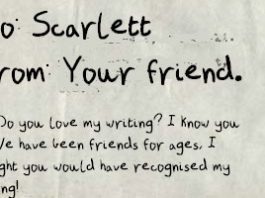 o: Scarlett
rom: Your friend.
Do you love my writing? I know you
e have been friends for ages, I
ght you would have recognised my
ng!